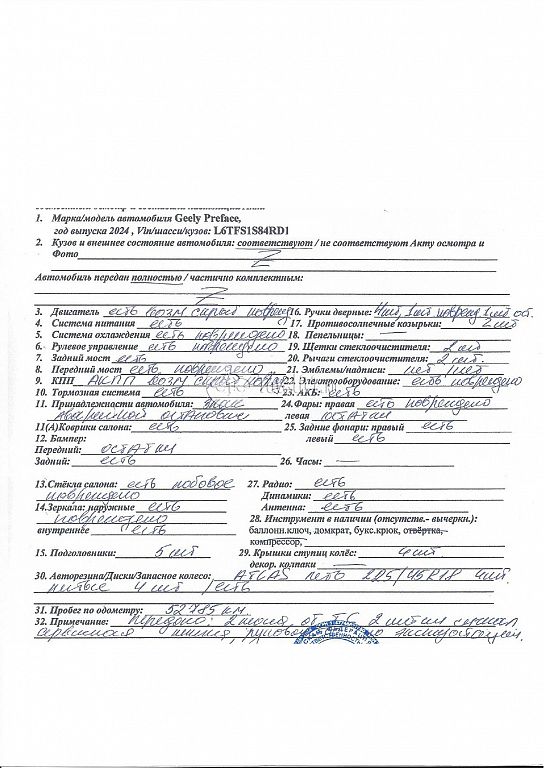 1. Марка/модель автомобиля Geely Preface,
год выпуска 2024 , Vin/шасси/кузов: L6TFS1S84RD1
2. Кузов и внешнее состояние автомобиля: соответствуют / не соответствуют Акту осмотра и
Фото Z
Автомобиль передан полностью / частично комплектным:
Z
3. Двигатель есть возм скрыт поврежд 16. Ручки дверные: 4 шт, 1 шт поврежд 1 шт от.
4. Система питания есть 17. Противосолнечные козырьки: 2 шт
5. Система охлаждения есть повреждено 18. Пепельницы: —
6. Рулевое управление есть повреждено 19. Щетки стеклоочистителя: 2 шт
7. Задний мост есть 20. Рычаги стеклоочистителя: 2 шт.
8. Передний мост есть повреждено 21. Эмблемы/надписи: нет / нет
9. КПП АКПП возм 22. Электрооборудование: есть повреждено
10. Тормозная система есть 23. АКБ: есть
11. Принадлежности автомобиля: знак 24.Фары: правая есть повреждено
аварийной остановки левая остатки
11(А)Коврики салона: есть 25. Задние фонари: правый есть
12. Бампер: левый есть
Передний: остатки
Задний: есть 26. Часы: —
13.Стёкла салона: есть лобовое 27. Радио: есть
повреждено Динамики: есть
14.Зеркала: наружные есть Антенна: есть
повреждено 28. Инструмент в наличии (отсутств.- вычеркн.):
внутреннее есть баллонн.ключ, домкрат, букс.крюк, отвёртка,
компрессор,
15. Подголовники: 5 шт 29. Крышки ступиц колёс: 4 шт
декор. колпаки —
30. Авторезина/Диски/Запасное колесо: ATLAS лето 225/45R18 4шт
литые 4 шт / есть
31. Пробег по одометру: 52785 км.
32. Примечание: Передано: 2 ключа, 2
сервисная книжка, по эксплуатации.